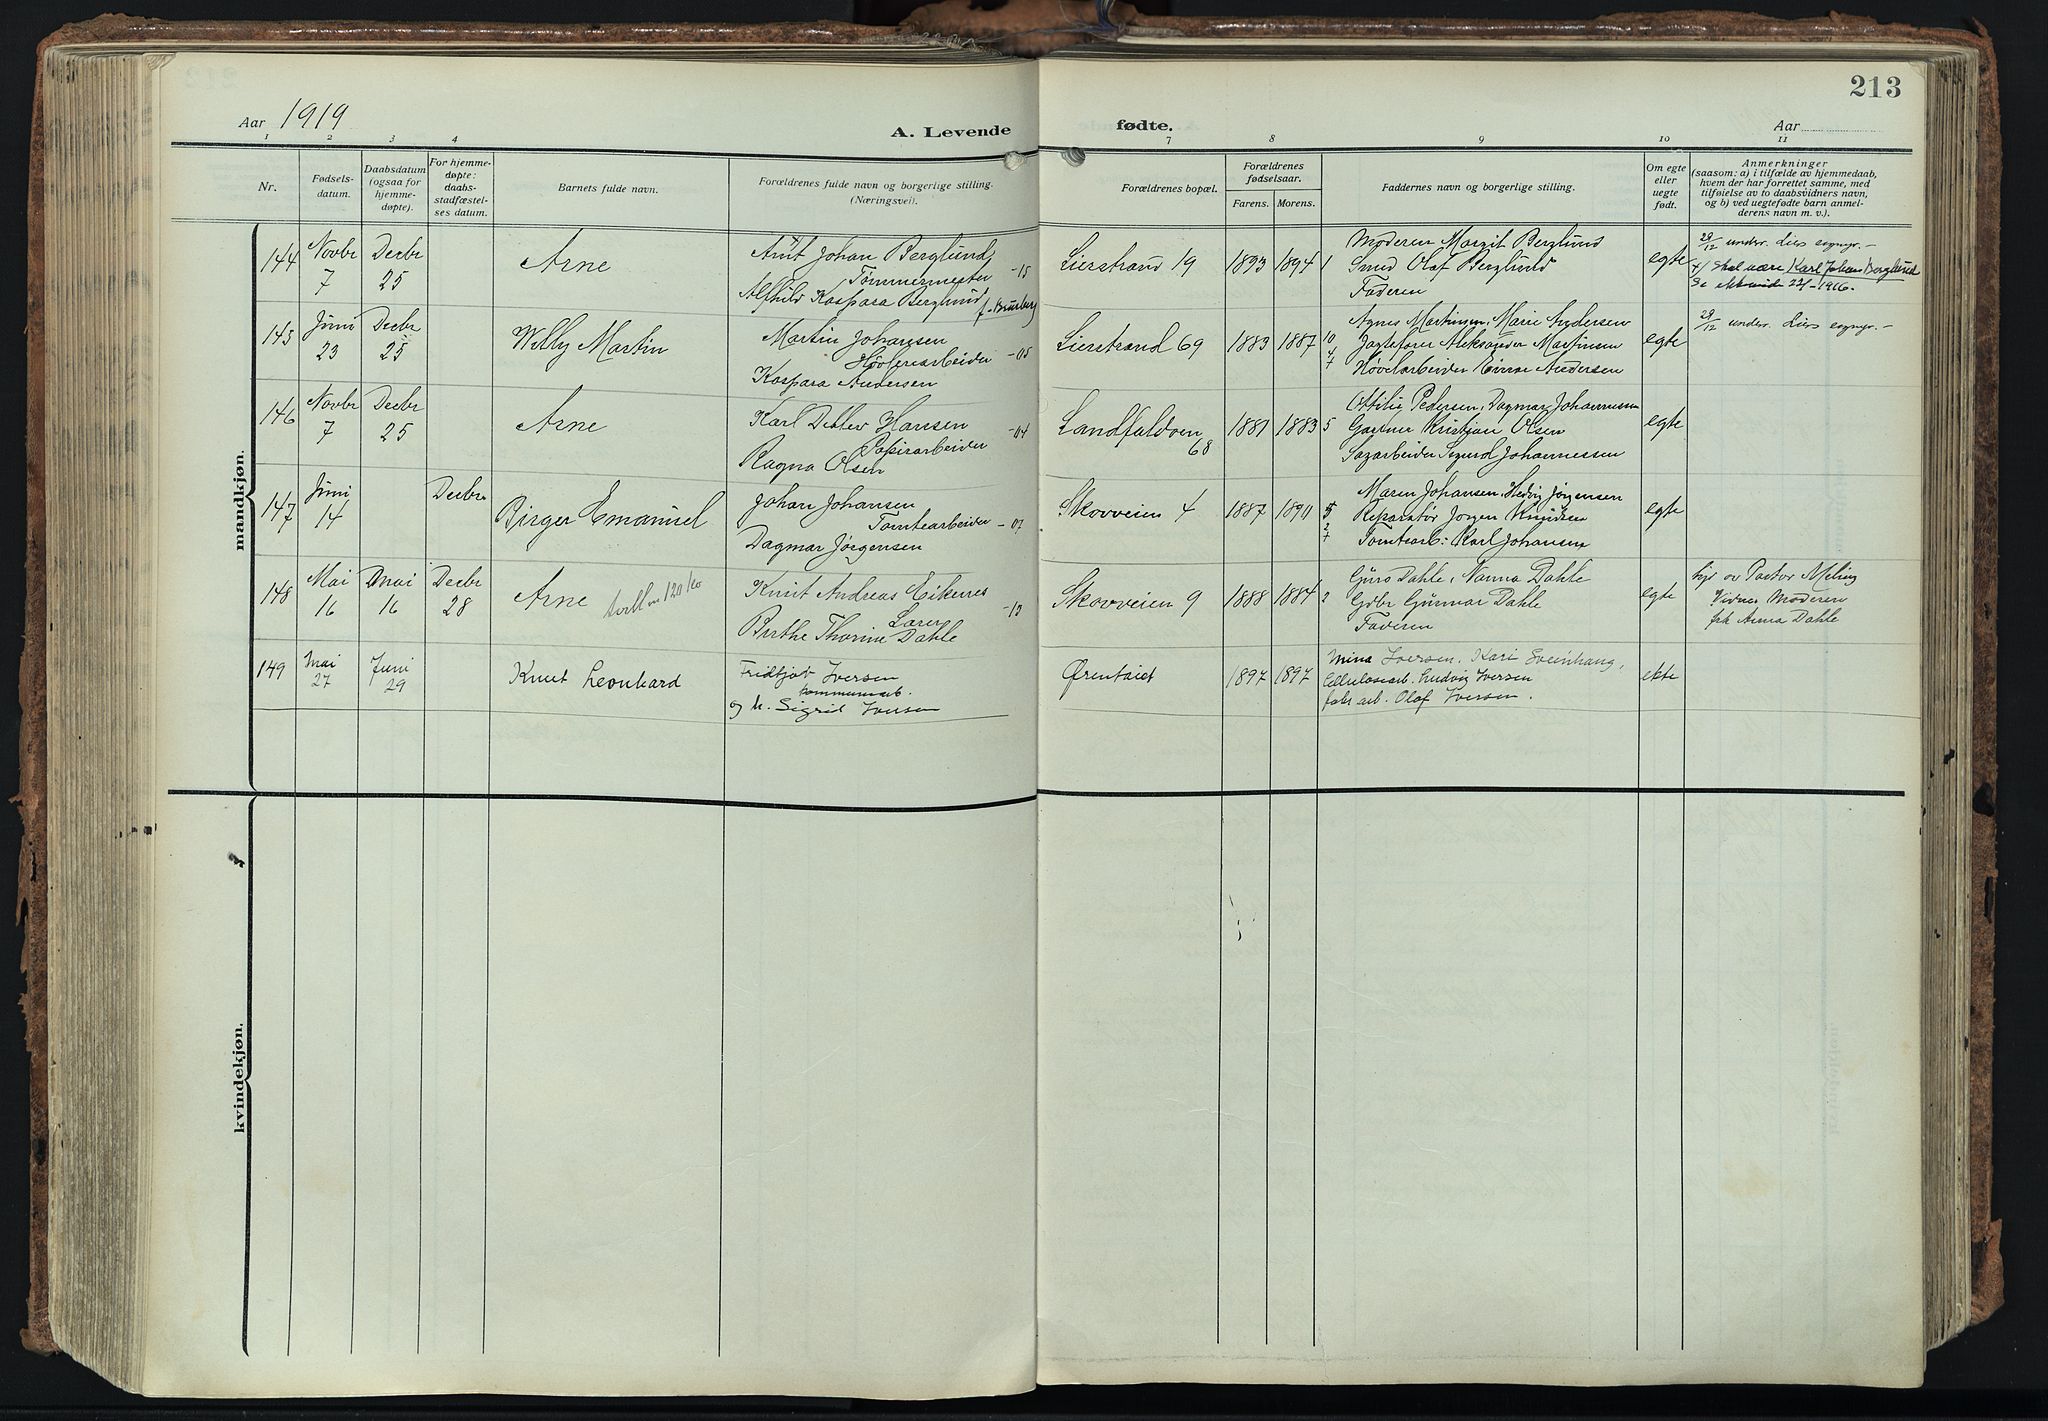 213
Aar 1919
A. Levende fødte.
Aar
1 2 3 4 7 8 9 10 11
Nr.
Fødsels-
datum.
Daabsdatum
(ogsaa for
hjemme-
døpte).
For hjemme-
døpte:
daabs-
stadfæstel-
ses datum.
Barnets fulde navn.
Forældrenes fulde navn og borgerlige stilling.
(Næringsvei).
Forældrenes bopæl.
Forældrenes
fødselsaar.
Farens. Morens.
Faddernes navn og borgerlige stilling.
Om egte
eller
uegte
født.
Anmerkninger
(saasom: a) i tilfælde av hjemmedaab,
hvem der har forrettet samme, med
tilføielse av to daabsvidners navn,
og b) ved uegtefødte barn anmel-
derens navn m. v.).
mandkjøn.
144
Novbr
7
Decbr
25
Arne
Johan Berglund
Tømmermester
Alfhild Kaspara Berglund
-15
Lierstrand 19
1893 1894 1
Moderen Margit Berglund
Smed Olaf Berglund
Faderen
egte
29/12 underr. Liers sognepr. -
skal være Karl Johan Berglund
1916.
145
Juni
23
Decbr
25
Willy Martin
Martin Johansen
Høvleriarbeider
Kaspara Andersen
-05
Lierstrand 69
1883 1887 10
4
7
Agnes Martinsen, Marie Andersen
Jagtefører Aleksander Martinsen
Høvelarbeider Einar Andersen
egte
29/12 underr. Liers sognepr. -
146
Novbr
7
Decbr
25
Arne
Karl Detlev Hansen
Papirarbeider
Ragna Olsen
-04
Landfaldøen
68
1881 1883 5
Ottilie Pedersen, Dagmar Johannessen
Gartner Kristian Olsen
Sagarbeider Sigurd Johannessen
egte
147
Juni
14
Decbr
Birger Emanuel
Johan Johansen
Tomtearbeider
Dagmar Jørgensen
-07
Skovveien 4
1887 1890 5
2
7
Maren Johansen, Hedvig Jørgensen
Reparatør Jørgen Knudsen
Tomtearb: Karl Johansen
egte
148
Mai
16
Mai
16
Decbr
28
Arne
tvill m 120 kv
Knut Andreas Eikenes
Lærer
Birthe Thorine Dahle
-12
Skovveien 9
1888 1884 2
Guro Dahle, Nanna Dahle
Gdbr Gunnar Dahle
Faderen
egte
hjd av Pastor Meling
Vidner Moderen
frk Anna Dahle
149
Mai
27
Juni
29
Knut Leonhard
Fridtjot Iversen
kommunearb.
og h. Sigrid Iversen
Ørentøiet
1897 1897
Mina Iversen, Kari Sveinhaug,
Cellulosearb. Ludvig Iversen
fabr arb. Olaf Iversen.
ekte
kvindekjøn.